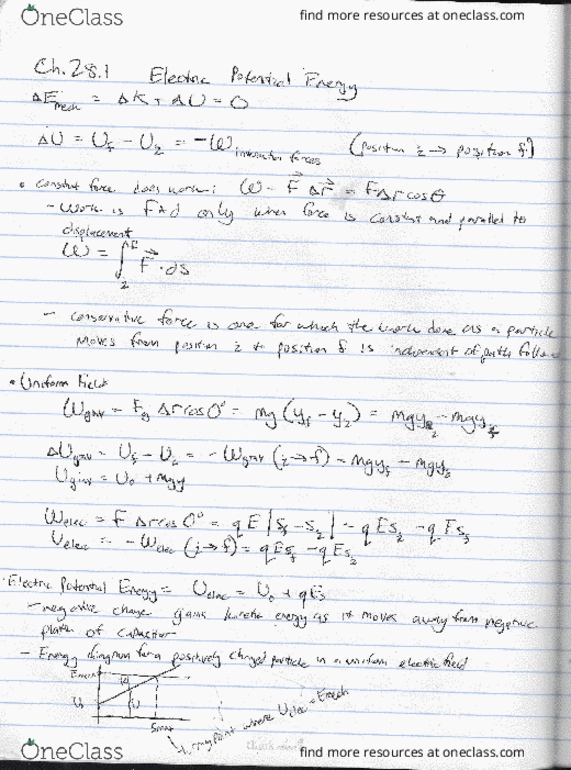 OneClass
find more resources at oneclass.com
Ch. 28.1 Electric Potential Energy
ΔEmech = ΔK + ΔU = 0
ΔU = Uf - Ui = -W interaction forces (position i → position f)
• Constant force does work: W = F Δr = FΔr cosθ
- Work is F*d only when force is constant and parallel to
displacement
W = ∫ F · ds
- conservative force is one for which the work done as a particle
moves from position i to position f is independent of path
• Uniform Fields
Wgrav = Fg Δr cos 0° = mg (yf - yi) = mgyi - mgyf
ΔUgrav = Uf - Ui = - Wgrav (i→f) = mgyf - mgyi
Ugrav = U0 + mgy
Welec = F Δr cos 0° = qE |sf - si| = qEsi - qEsf
Uelec = - Welec (i→f) = qEsf - qEsi
• Electric Potential Energy = Uelec = U0 + qEs
- negative charge gains kinetic energy as it moves away from negative
plate of capacitor
- Energy diagram for a positively charged particle in a uniform electric field
Emech
U0
U
Smax
point where Uelec = Emech
OneClass
find more resources at oneclass.com